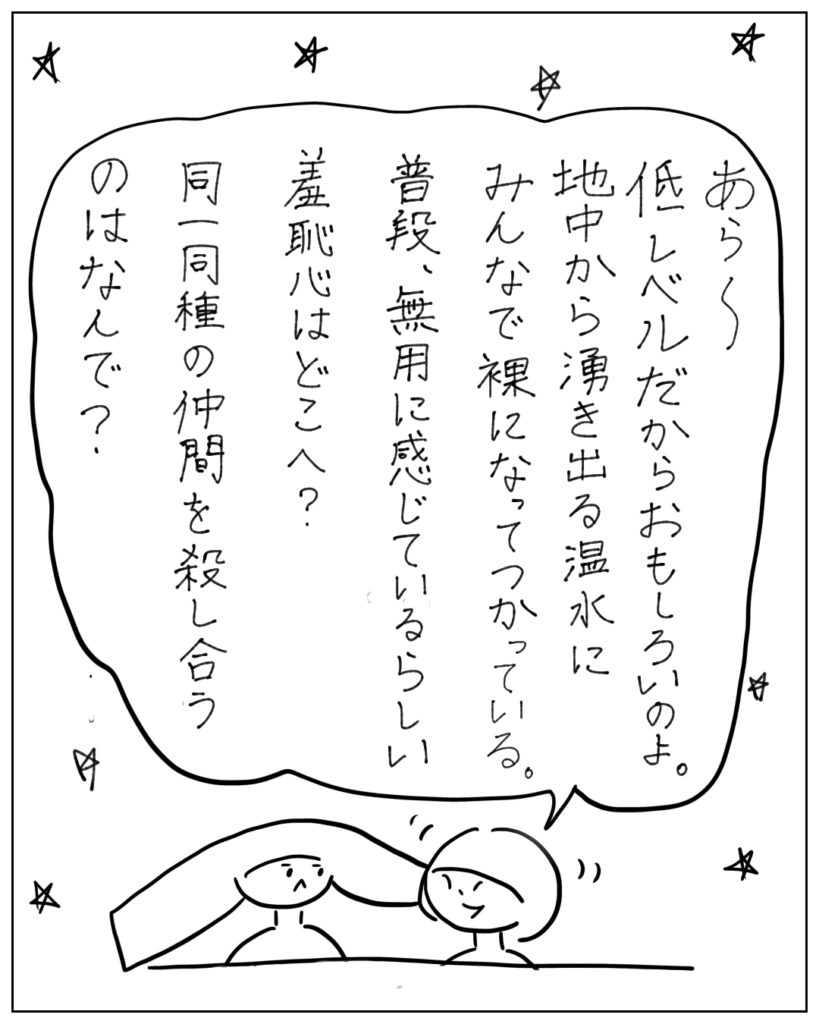 あら〜
低レベルだからおもしろいのよ。
地中から湧き出る温水に
みんなで裸になってつかっている。
普段、無用に感じているらしい
羞恥心はどこへ？
同一同種の仲間を殺し合う
のはなんで？